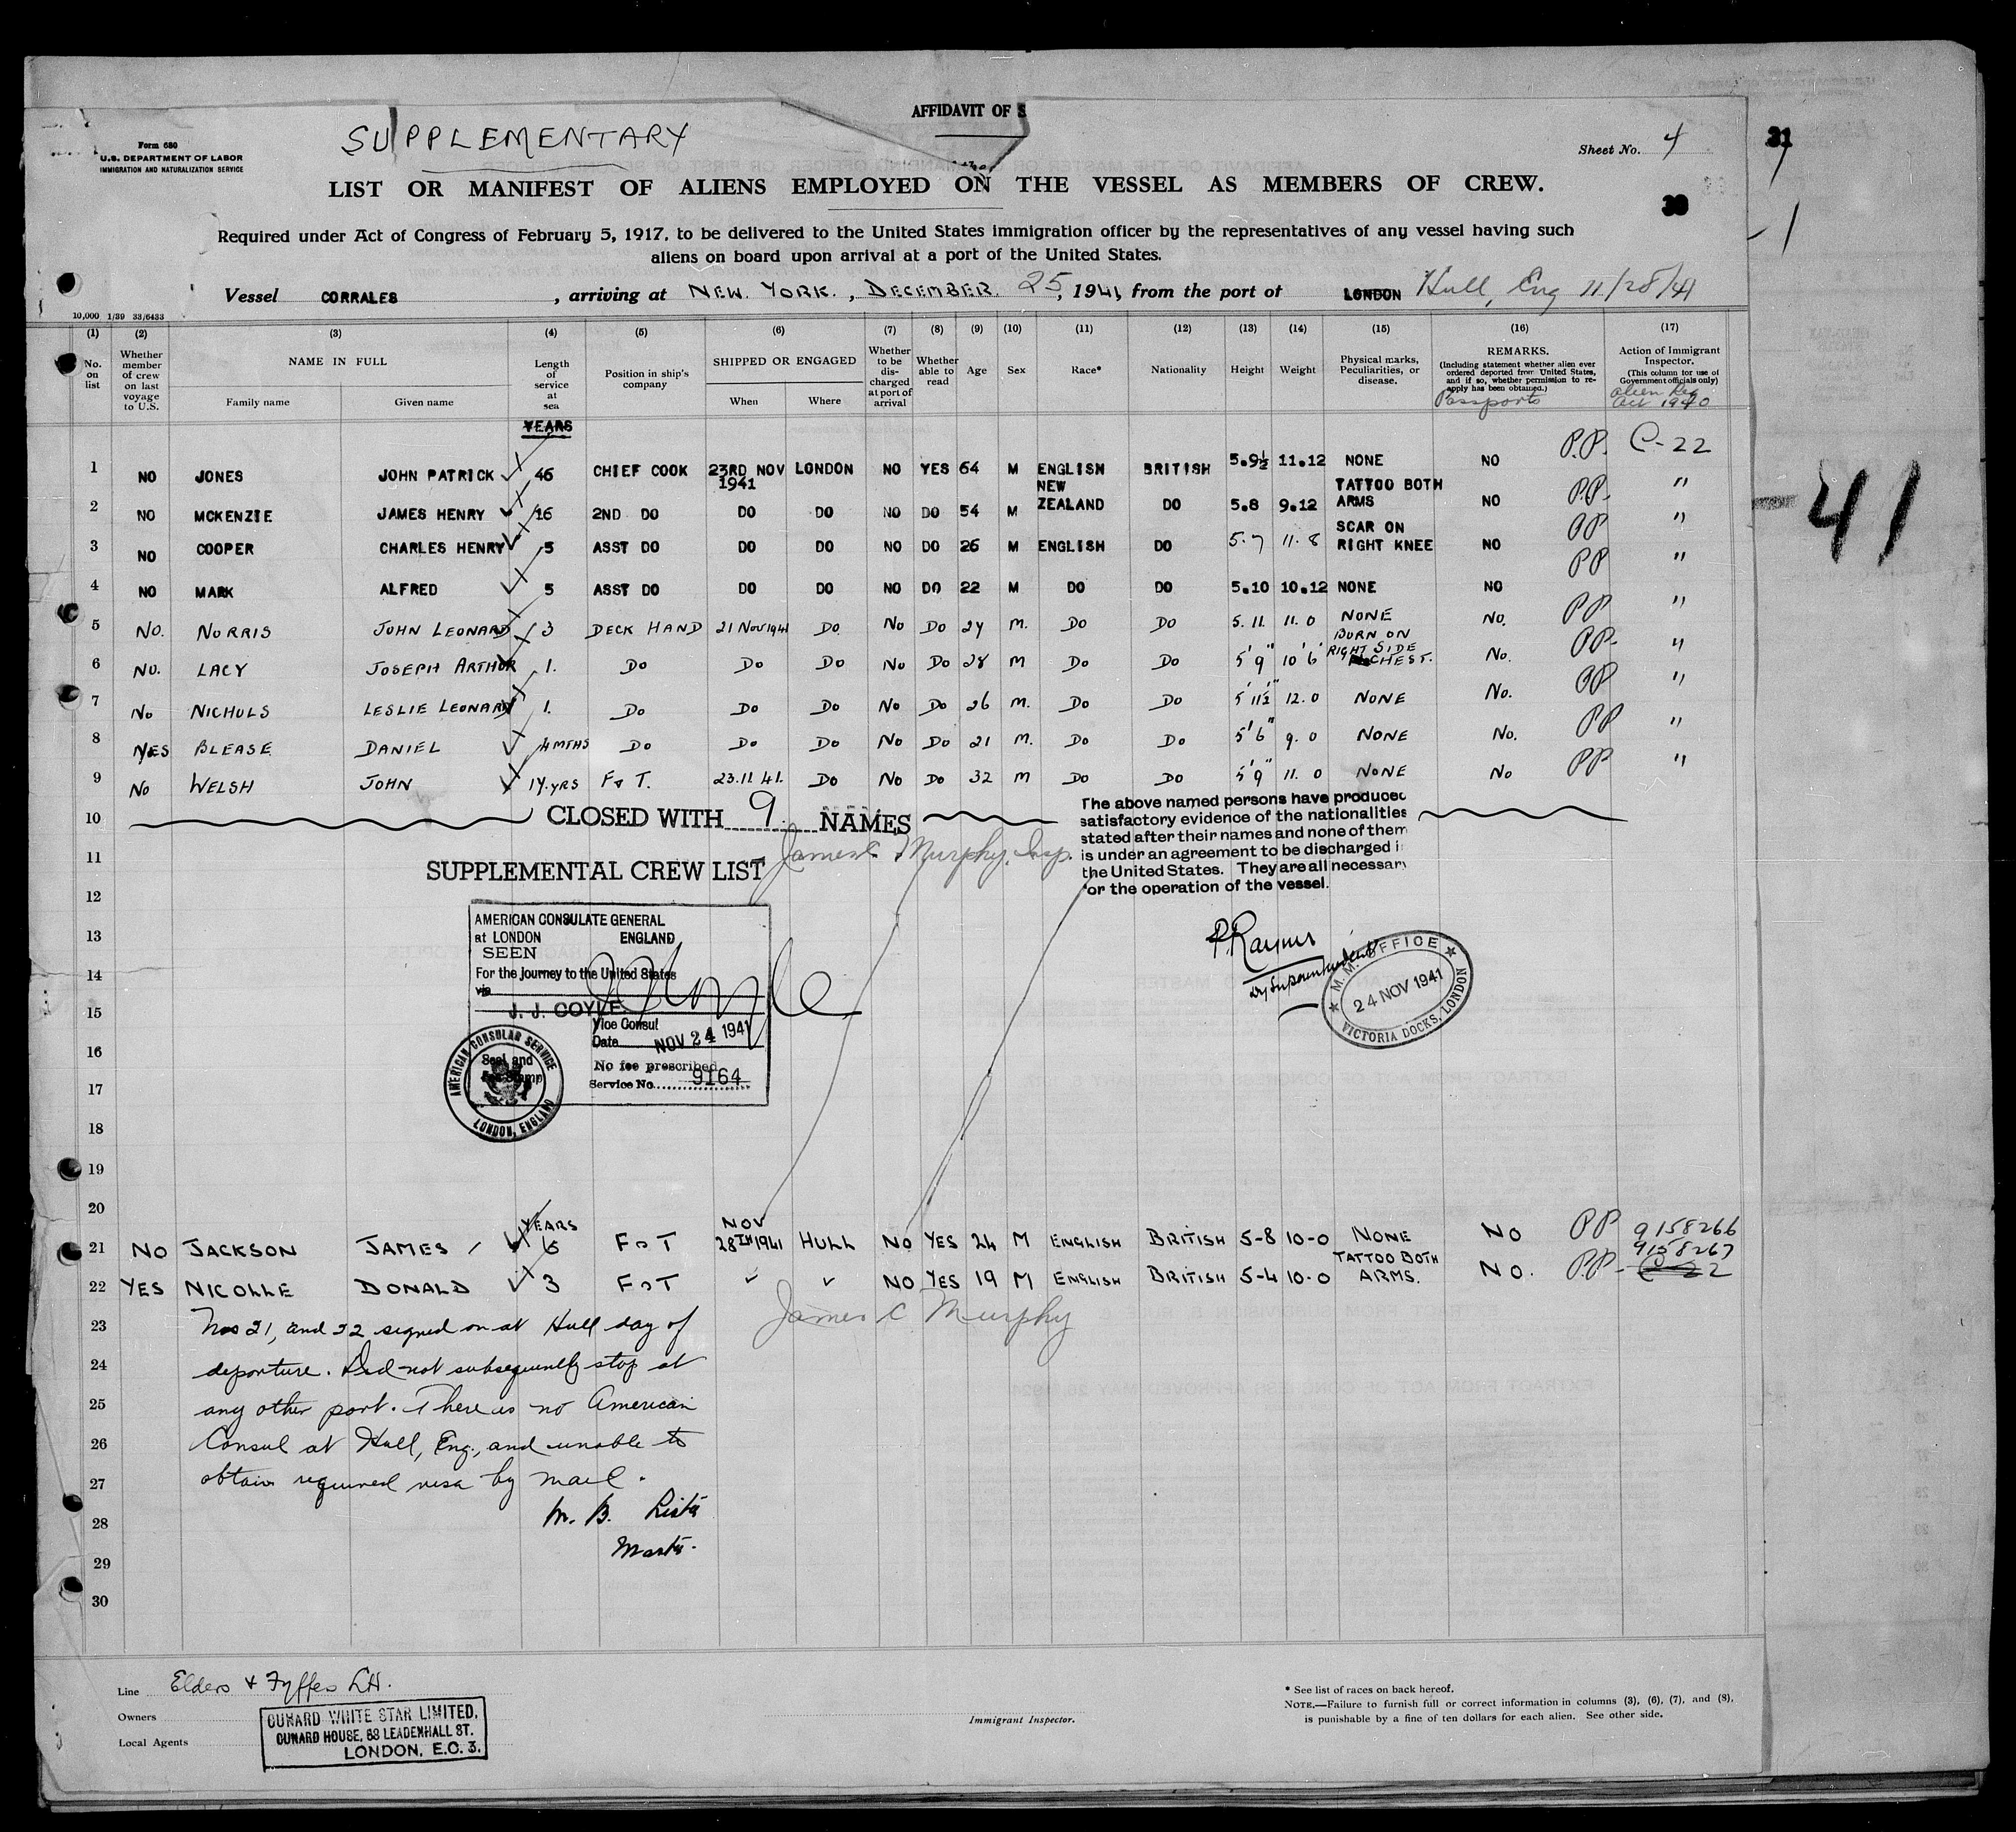 AFFIDAVIT OF S
SUPPLEMENTARY
Form 680
U.S. DEPARTMENT OF LABOR
IMMIGRATION AND NATURALIZATION SERVICE
Sheet No. 4
31
30
LIST OR MANIFEST OF ALIENS EMPLOYED ON THE VESSEL AS MEMBERS OF CREW.
Required under Act of Congress of February 5, 1917, to be delivered to the United States immigration officer by the representatives of any vessel having such
aliens on board upon arrival at a port of the United States.
-1
Vessel CORRALES , arriving at NEW. YORK. , DECEMBER. 25, 1941, from the port of LONDON Hull, Eng 11/28/41
10,000 1/39 33/6433
(1) (2) (3) (4) (5) (6) (7) (8) (9) (10) (11) (12) (13) (14) (15) (16) (17)
No. on list
Whether member of crew on last voyage to U.S.
NAME IN FULL
Family name Given name
Length of service at sea
Position in ship's company
SHIPPED OR ENGAGED
When Where
Whether to be discharged at port of arrival
Whether able to read
Age
Sex
Race*
Nationality
Height
Weight
Physical marks, Peculiarities, or disease.
REMARKS.
(Including statement whether alien ever ordered deported from United States, and if so, whether permission to reapply has been obtained.)
Passports
Action of Immigrant Inspector.
(This column for use of Government officials only)
Alien Reg Act 1940
YEARS
1 NO JONES JOHN PATRICK 46 CHIEF COOK 23RD NOV 1941 LONDON NO YES 64 M ENGLISH BRITISH 5.9½ 11.12 NONE NO P.P. C-22
2 NO MCKENZIE JAMES HENRY 16 2ND DO DO DO NO DO 54 M NEW ZEALAND DO 5.8 9.12 TATTOO BOTH ARMS NO P.P. "
3 NO COOPER CHARLES HENRY 5 ASST DO DO DO NO DO 26 M ENGLISH DO 5.7 11.8 SCAR ON RIGHT KNEE NO PP "
4 NO MARK ALFRED 5 ASST DO DO DO NO DO 22 M DO DO 5.10 10.12 NONE NO PP "
5 NO. NORRIS JOHN LEONARD 3 DECK HAND 21 Nov 1941 DO No DO 24 M. DO DO 5.11. 11.0 NONE NO. PP "
6 NO. LACY JOSEPH ARTHUR 1. DO DO DO No DO 28 M DO DO 5'9" 10'6' BURN ON RIGHT SIDE CHEST. No. PP- "
7 No NICHOLS LESLIE LEONARD 1. DO DO DO No DO 26 M. DO DO 5'11½" 12.0 NONE No. PP "
8 YES BLEASE DANIEL 4 MTHS DO DO DO No DO 21 M. DO DO 5'6" 9.0 NONE No. PP "
9 No WELSH JOHN 14.YRS F & T. 23.11.41. DO No DO 32 M DO DO 5'9" 11.0 NONE No PP "
10 CLOSED WITH 9 NAMES
11 James C. Murphy. Insp.
SUPPLEMENTAL CREW LIST
The above named persons have produced
satisfactory evidence of the nationalities
stated after their names and none of them
is under an agreement to be discharged i
the United States. They are all necessary
for the operation of the vessel.
-41
12
13
14
15
16
17
18
19
20
AMERICAN CONSULATE GENERAL
at LONDON ENGLAND
SEEN
For the journey to the United States
via
J. J. COYLE
Vice Consul
Date NOV 24 1941
No fee prescribed
Service No. 9164
Seal and
Fee Stamp
AMERICAN CONSULAR SERVICE
LONDON, ENGLAND
P. Rayner
Dy Superintendent
M. M. OFFICE
24 NOV 1941
VICTORIA DOCKS, LONDON
21 NO JACKSON JAMES YEARS 6 F & T NOV 28TH 1941 HULL NO YES 24 M ENGLISH BRITISH 5-8 10-0 NONE NO PP 9158266
22 YES NICOLLE DONALD 3 F & T NO YES 19 M ENGLISH BRITISH 5-4 10-0 TATTOO BOTH ARMS. NO. PP- 9158267 C-22
James C Murphy
23 Nos 21, and 22 signed on at Hull day of
24 departure. Did not subsequently stop at
25 any other port. There is no American
26 Consul at Hull, Eng., and unable to
27 obtain required visa by mail.
28
29
30
Line Elders & Fyffes Ltd.
Owners
Local Agents
CUNARD WHITE STAR LIMITED,
CUNARD HOUSE, 88 LEADENHALL ST.
LONDON, E.C. 3.
Immigrant Inspector.
* See list of races on back hereof.
NOTE.—Failure to furnish full or correct information in columns (3), (6), (7), and (8),
is punishable by a fine of ten dollars for each alien. See other side.